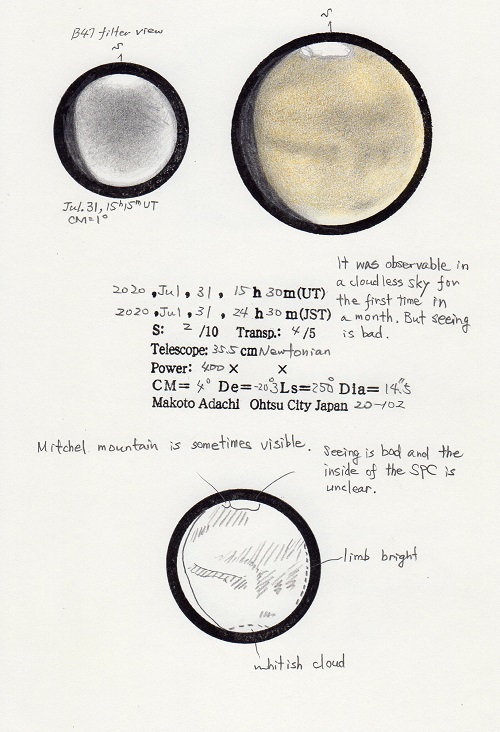 B47 filter view
S
S
Jul. 31, 15h 15m UT
CM=1°
It was observable in
a cloudless sky for
the first time in
a month. But seeing
is bad.
2020, Jul, 31, 15 h 30 m (UT)
2020, Jul, 31, 24 h 30 m (JST)
S: 2 /10 Transp.: 4/5
Telescope: 35.5 cm Newtonian
Power: 400 × ×
CM= 4° De=-20.°3 Ls=250° Dia= 14."5
Makoto Adachi Ohtsu City Japan 20-102
Mitchel mountain is sometimes visible.
Seeing is bad and the
inside of the SPC is
unclear.
limb bright
whitish cloud